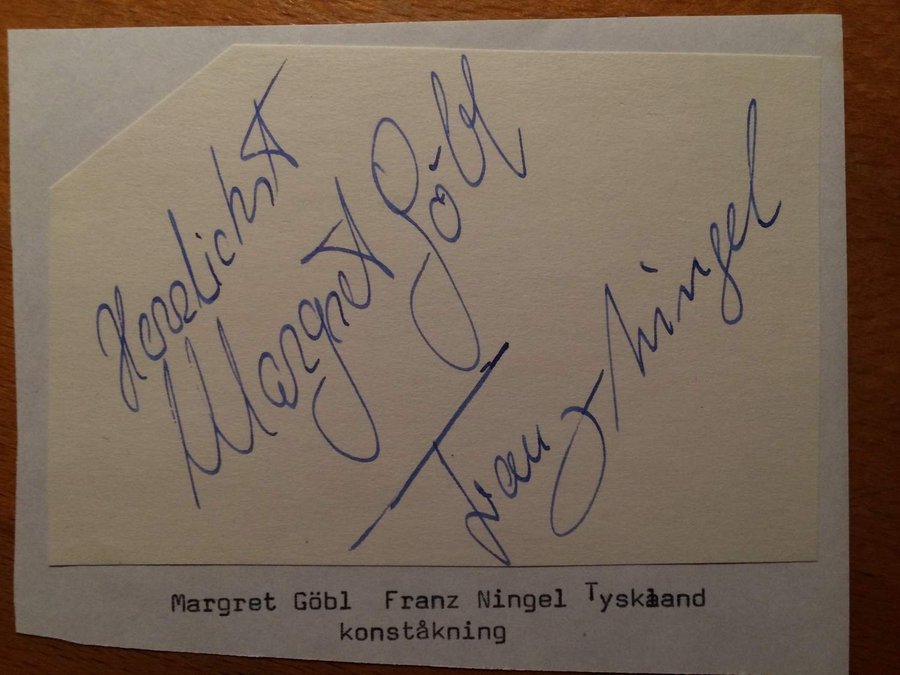 Herzlichst
Margret Göbl
Franz Ningel
Margret Göbl Franz Ningel Tyskland
konståkning